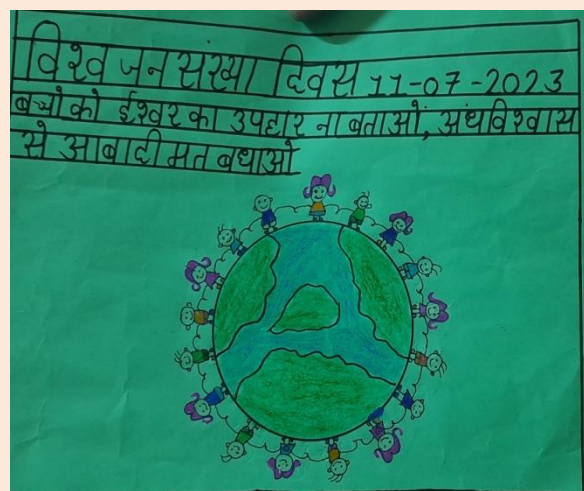 विश्व जन संख्या दिवस 11-07-2023
बच्चो को ईश्वर का उपहार ना बताओं, अंधविश्वास
से आबादी मत बधाओ